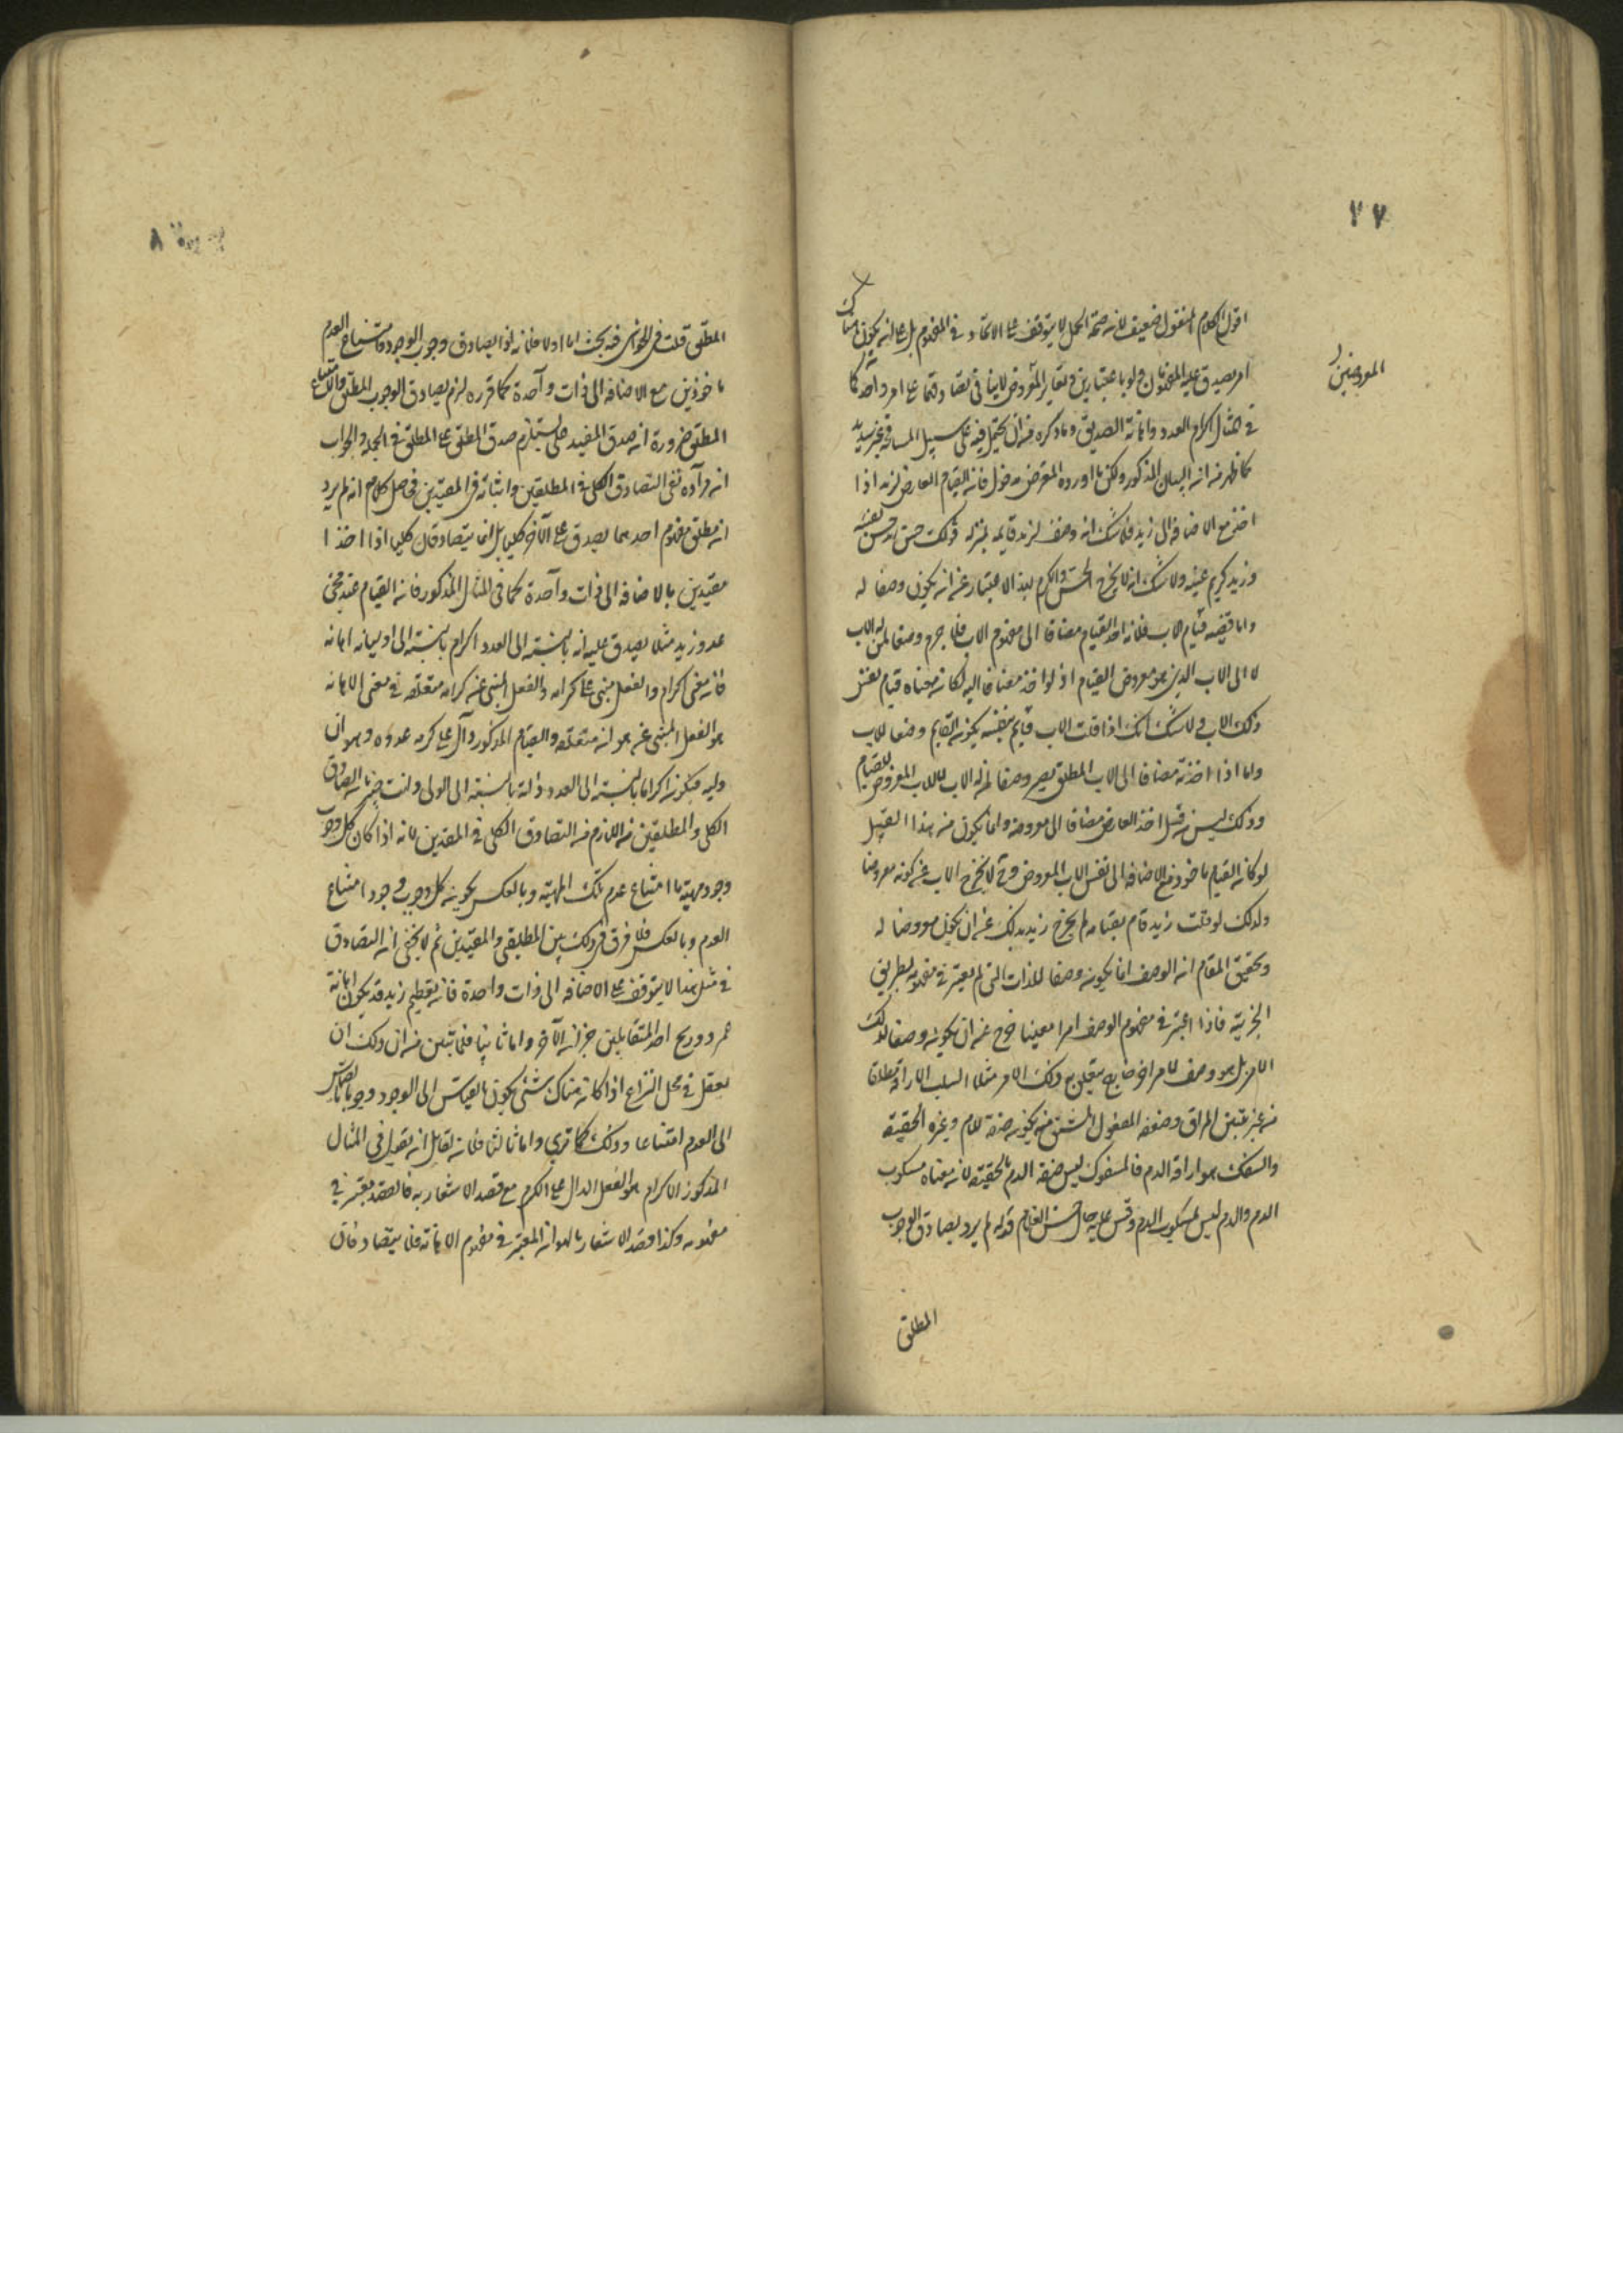 ٧٧
اقول الكلام المنقول ضعيف لانه صحة الحمل لا يتوقف على الاتحاد في المفهوم بل على انه يكون هناك
امر يصدق عليه المفهومان ولو باعتبارين وتغاير المعروض لا ينافي تصادقهما على امر واحد كما
المعروضين
في مثال اكرام العدو واهانة الصديق وما ذكره من ان يحمل فيه على سبيل المسامحة غير سديد
كما ظهر من البيان المذكور ولكن ما اورده المعترض مدخول فان القيام العارض لزيد اذا
اخذ مع الاضافة الى زيد فلا شك انه وصف لزيد قايم به بمنزلة قولك حسن زيد حسن نفسه
وزيد كريم عينه ولا شك انه لا يخرج الحسن والكرم بهذا الاعتبار عن ان يكون وصفا له
واما قضية قيام الاب فلانه اخذ القيام مضافا الى مفهوم الاب فلا جرم وصفا لمن له الاب
لا الى الاب الذي هو معروض القيام اذ لو اخذ مضافا اليه لكان معناه قيام نفس
ذلك الاب ولا شك انك اذا قلت الاب قايم بنفسه يكون القايم وصفا للاب
واما اذا اخذته مضافا الى الاب المطلق يصير وصفا لمن له الاب لا للاب المعروض للقيام
وذلك ليس من قبيل اخذ العارض مضافا الى معروضه وانما يكون من هذا القبيل
لو كان القيام ماخوذا مع الاضافة الى نفس الاب المعروض وح لا يخرج الاب عن كونه معروضا
ولذلك لو قلت زيد قام بقيامه لم يخرج زيد بذلك عن ان يكون معروضا له
وتحقيق المقام ان الوصف انما يكون وصفا للذات التي لم يعتبر في مفهومه بطريق
الجزئية فاذا اعتبر في مفهوم الوصف امرا معينا خرج عن ان يكون وصفا لذلك
الامر بل هو وصف لامر اخر خارج يتعلق به ذلك الامر مثلا السلب الاراقة مطلقا
من غير تعيين المراق وصفه المفعول المشتق منه يكون صفة للدم وغيره الحقيقة
والسفك هو اراقة الدم فالمسفوك ليس صفة الدم بالحقيقة لان معناه مسكوب
الدم والدم ليس بمسكوب الدم وقس عليه حال حسن الغلام قوله لم يرد تصادق الوجوب
المطلق
٨
المطلق قلت في الحواشي فيه بحث اما اولا فلانه اذا تصادق وجوب الوجود وامتناع العدم
ماخوذين مع الاضافة الى ذات واحدة كما قرره لزم تصادق الوجوب المطلق والامتناع
المطلق ضرورة ان صدق المقيد يستلزم صدق المطلق على المطلق في الجملة والجواب
ان مراده نفي التصادق الكلي في المطلقين واثباته في المقيدين فحاصل كلامه انه لم يرد
ان مطلق مفهوم احدهما يصدق على الآخر كليا بل انما يتصادقان كليا اذا اخذا
مقيدين بالاضافة الى ذات واحدة كما في المثال المذكور فان القيام عند مجئ
عدو زيد مثلا يصدق عليه انه بالنسبة الى العدو اكرام بالنسبة الى اوليائه اهانة
فان معنى اكرام والفعل مبني على اكرامه والفعل المبني عن كرامة متعلقه في معنى الاهانة
هو الفعل المبني عن هوانه متعلقه والقيام المذكور دال على كرم عدوه وهوان
وليه فيكون اكراما بالنسبة الى العدو ذلة بالنسبة الى الولي وانت خبير بان التصادق
الكلي في المطلقين من اللازم من التصادق الكلي في المقيدين لانه اذا كان كل وجوب
وجود مهية ما امتناع عدم تلك المهية وبالعكس يكون كل وجوب وجود امتناع
العدم وبالعكس فلا فرق في ذلك بين المطلقين والمقيدين ثم لا يخفى ان التصادق
في مثل هذا لا يتوقف على الاضافة الى ذات واحدة فان تعظيم زيد قد يكون اهانة
عمرو وربح احد المتقابلين خسران الآخر واما ثانيا فلما تبين من ان ذلك ان
يعقل في محل النزاع اذا كان هناك شئ يكون بالقياس الى الوجود وجوبا وبالقياس
الى العدم امتناعا وذلك كما ترى واما ثالثا فلان لقايل ان يقول في المثال
المذكور الاكرام هو الفعل الدال على الكرم مع قصد الاشعار به فالقصد يعتبر في
مفهومه وكذا قصد الاشعار بالهوان المعتبر في مفهوم الاهانة فلا يتصادقان